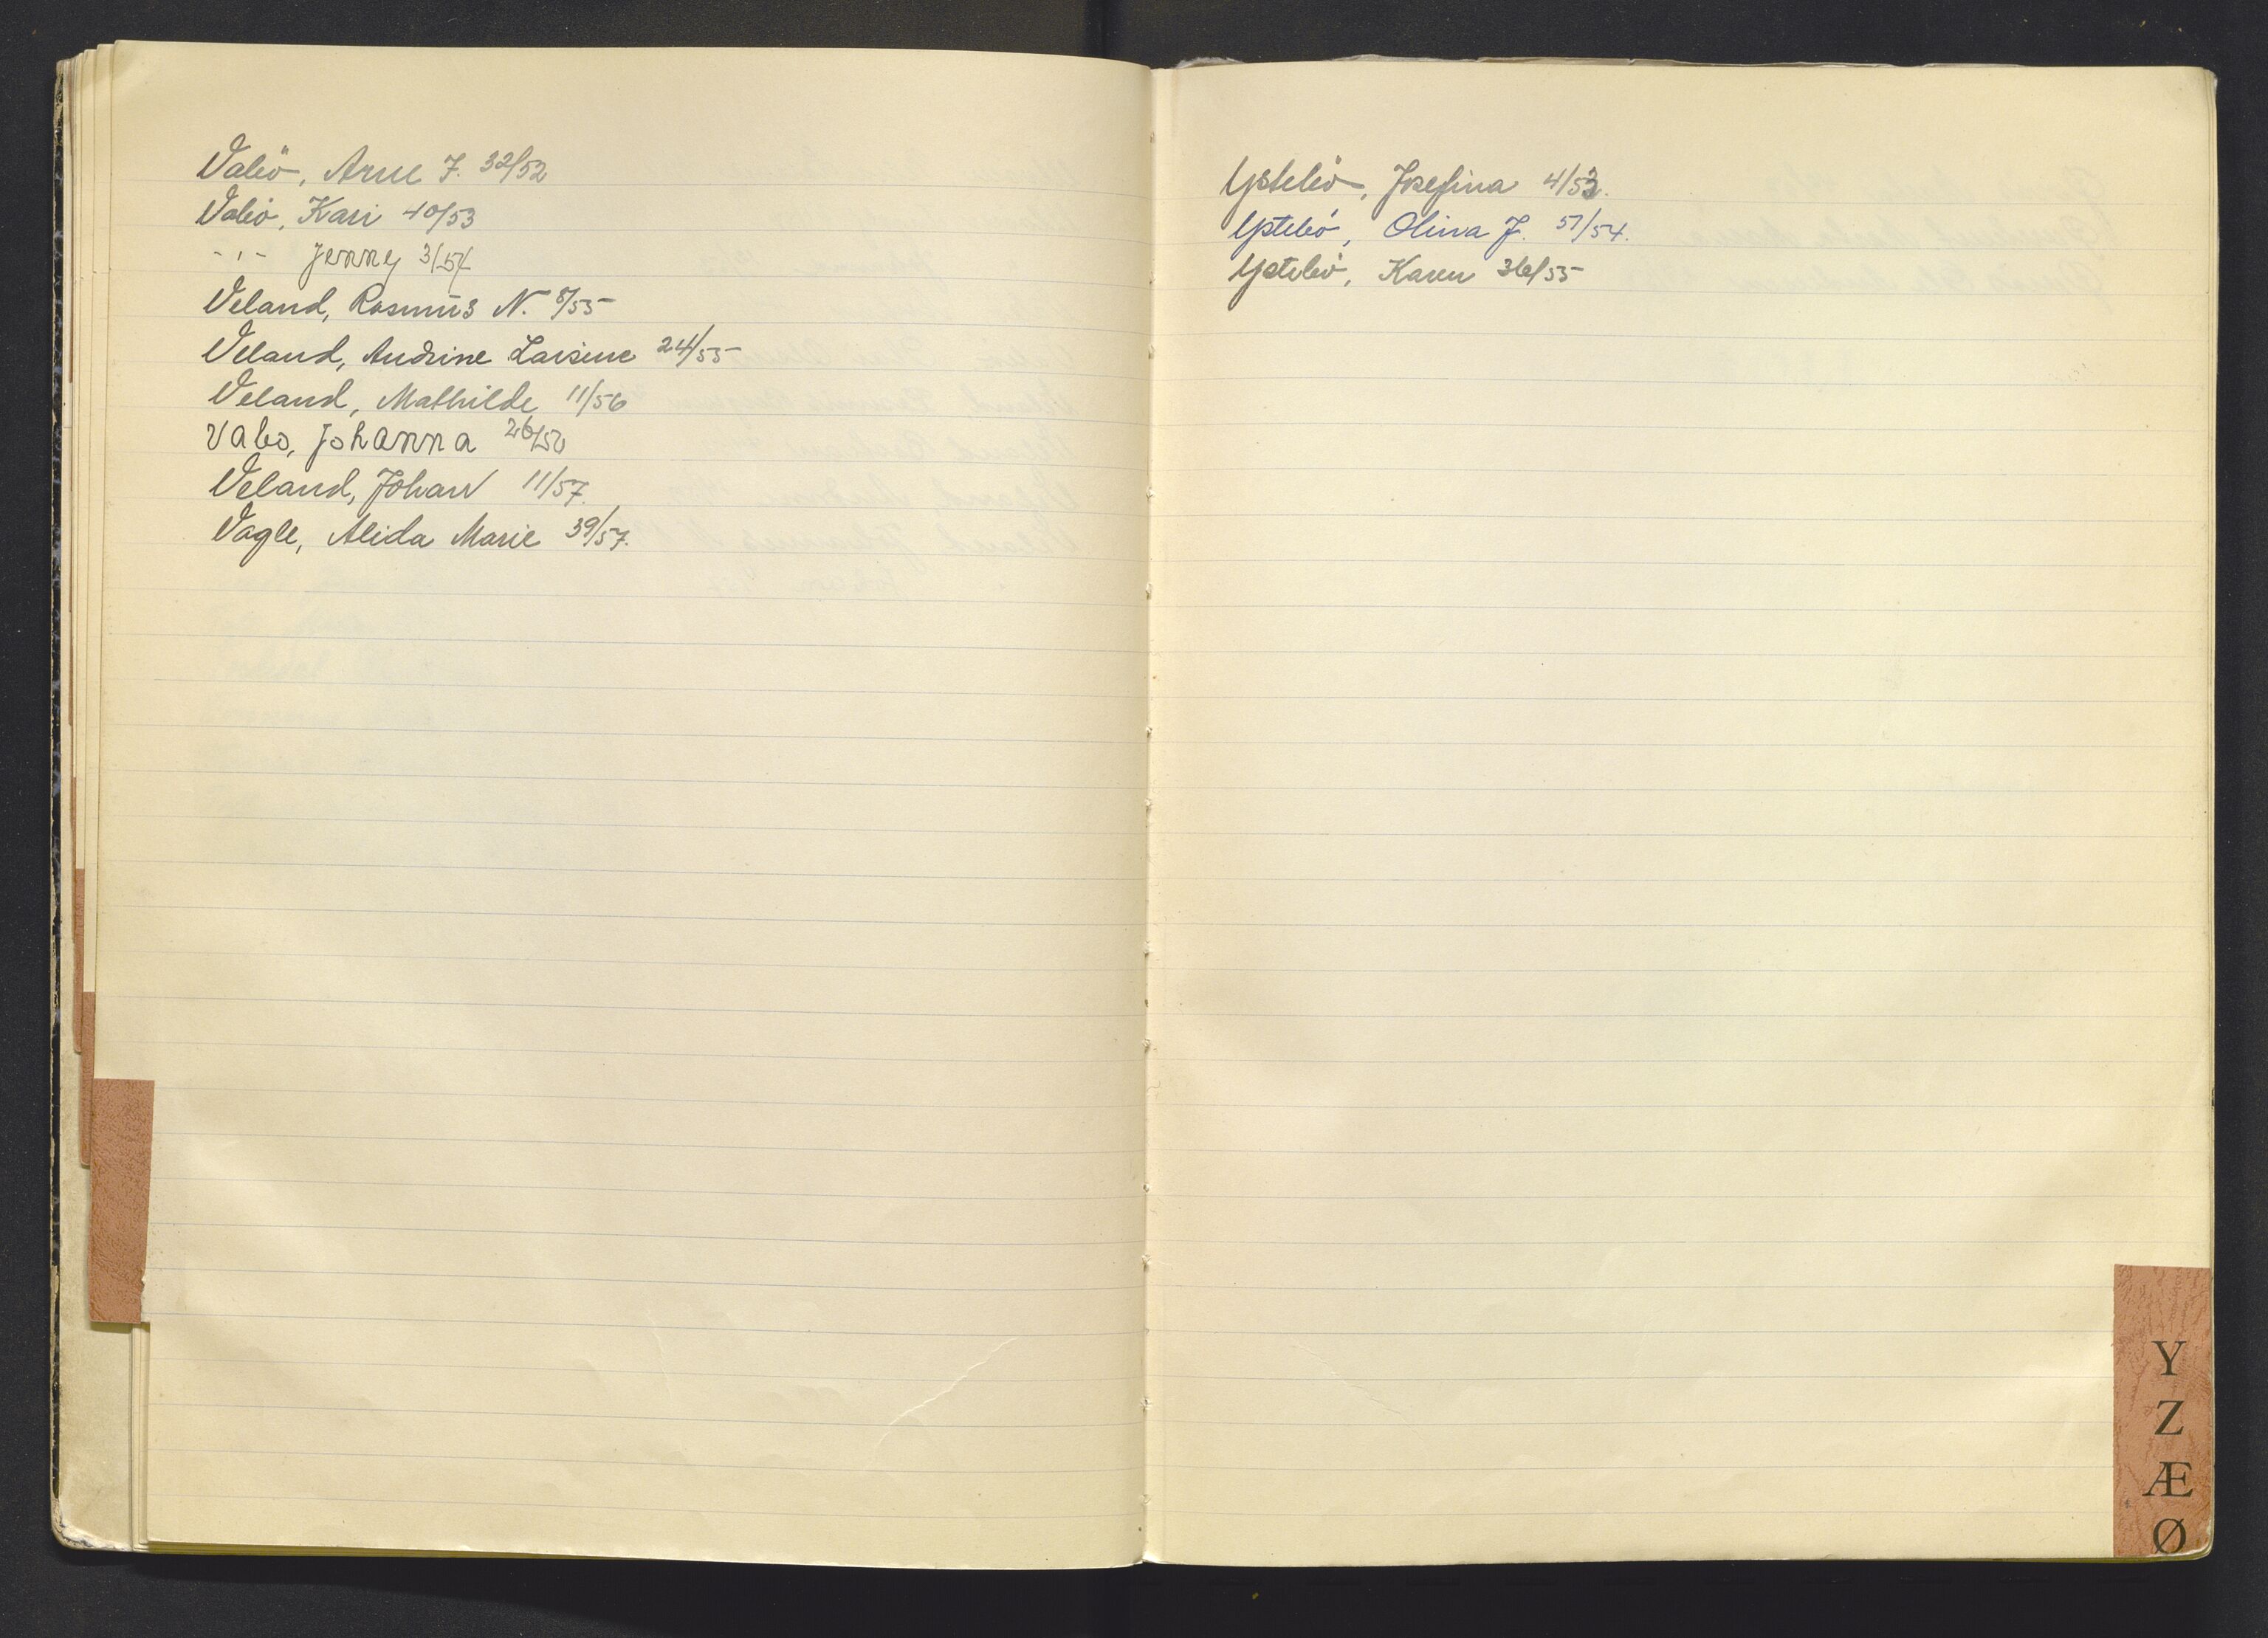 Vabö, Arne J. 32/52
Vabö, Kari 40/53
-"- Jenny 3/54
Veland, Rasmus N. 8/55
Veland, Andrine Larsine 24/55
Veland, Mathilde 11/56
Vabø, Johanna 26/56
Veland, Johan 11/57.
Vagle, Alida Marie 39/57.
Ystebö, Josefina 4/53.
Ystebö, Oliva J. 51/54.
Ystebö, Karen 36/55
Y
Z
Æ
Ø